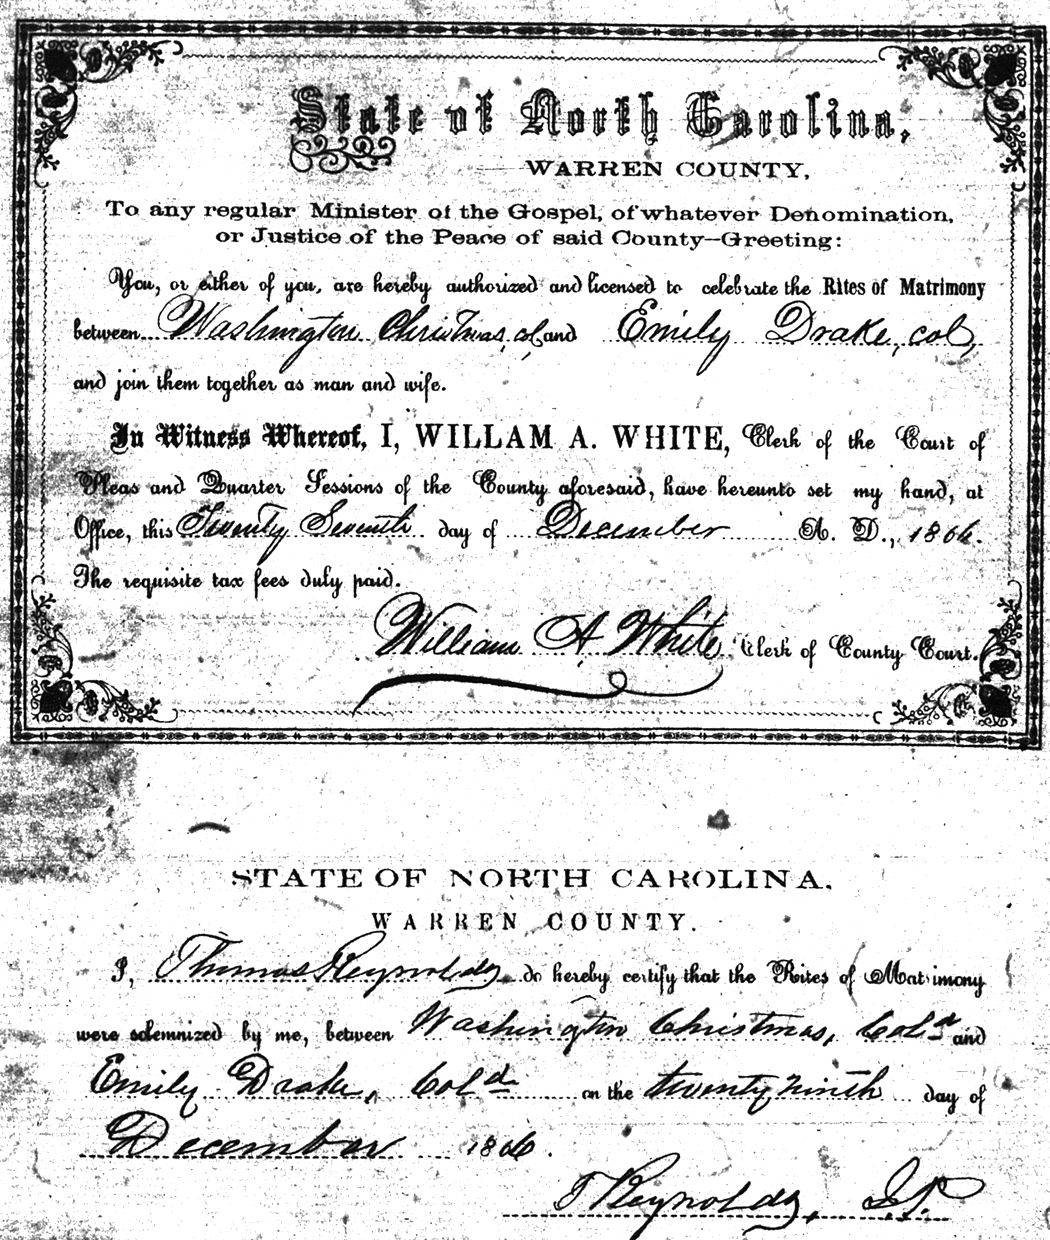 State of North Carolina,
WARREN COUNTY,
To any regular Minister of the Gospel, of whatever Denomination,
or Justice of the Peace of said County—Greeting:
You, or either of you, are hereby authorized and licensed to celebrate the Rites of Matrimony
between Washington Christmas, col and Emily Drake, col,
and join them together as man and wife.
In Witness Whereof, I, WILLAM A. WHITE, Clerk of the Court of
Pleas and Quarter Sessions of the County aforesaid, have hereunto set my hand, at
Office, this Twenty Seventh day of December A. D., 1866.
The requisite tax fees duly paid.
William A White Clerk of County Court.
STATE OF NORTH CAROLINA,
WARREN COUNTY.
I, Thomas Reynolds do hereby certify that the Rites of Matrimony
were solemnized by me, between Washington Christmas, Cold and
Emily Drake, Cold on the twenty ninth day of
December 1866.
T Reynolds, J.P.